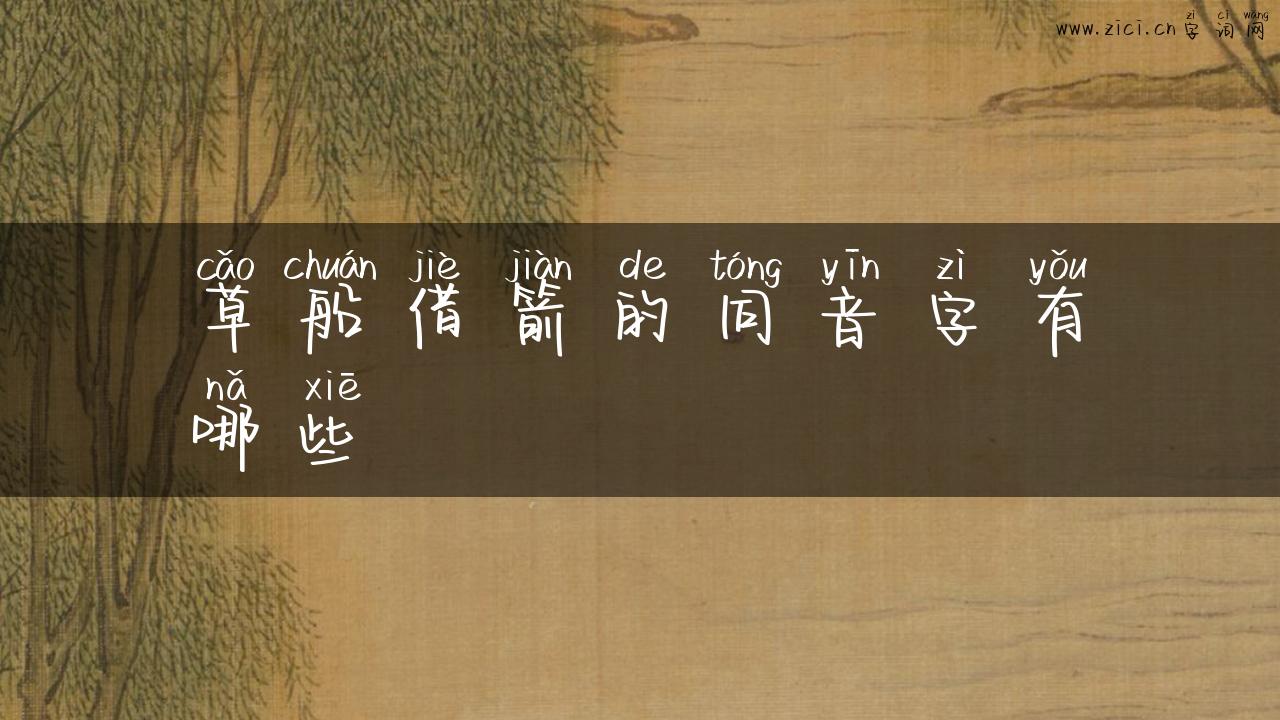 zì cí wǎng
www.zici.cn 字词网
cǎo chuán jiè jiàn de tóng yīn zì yǒu
草船借箭的同音字有
nǎ xiē
哪些